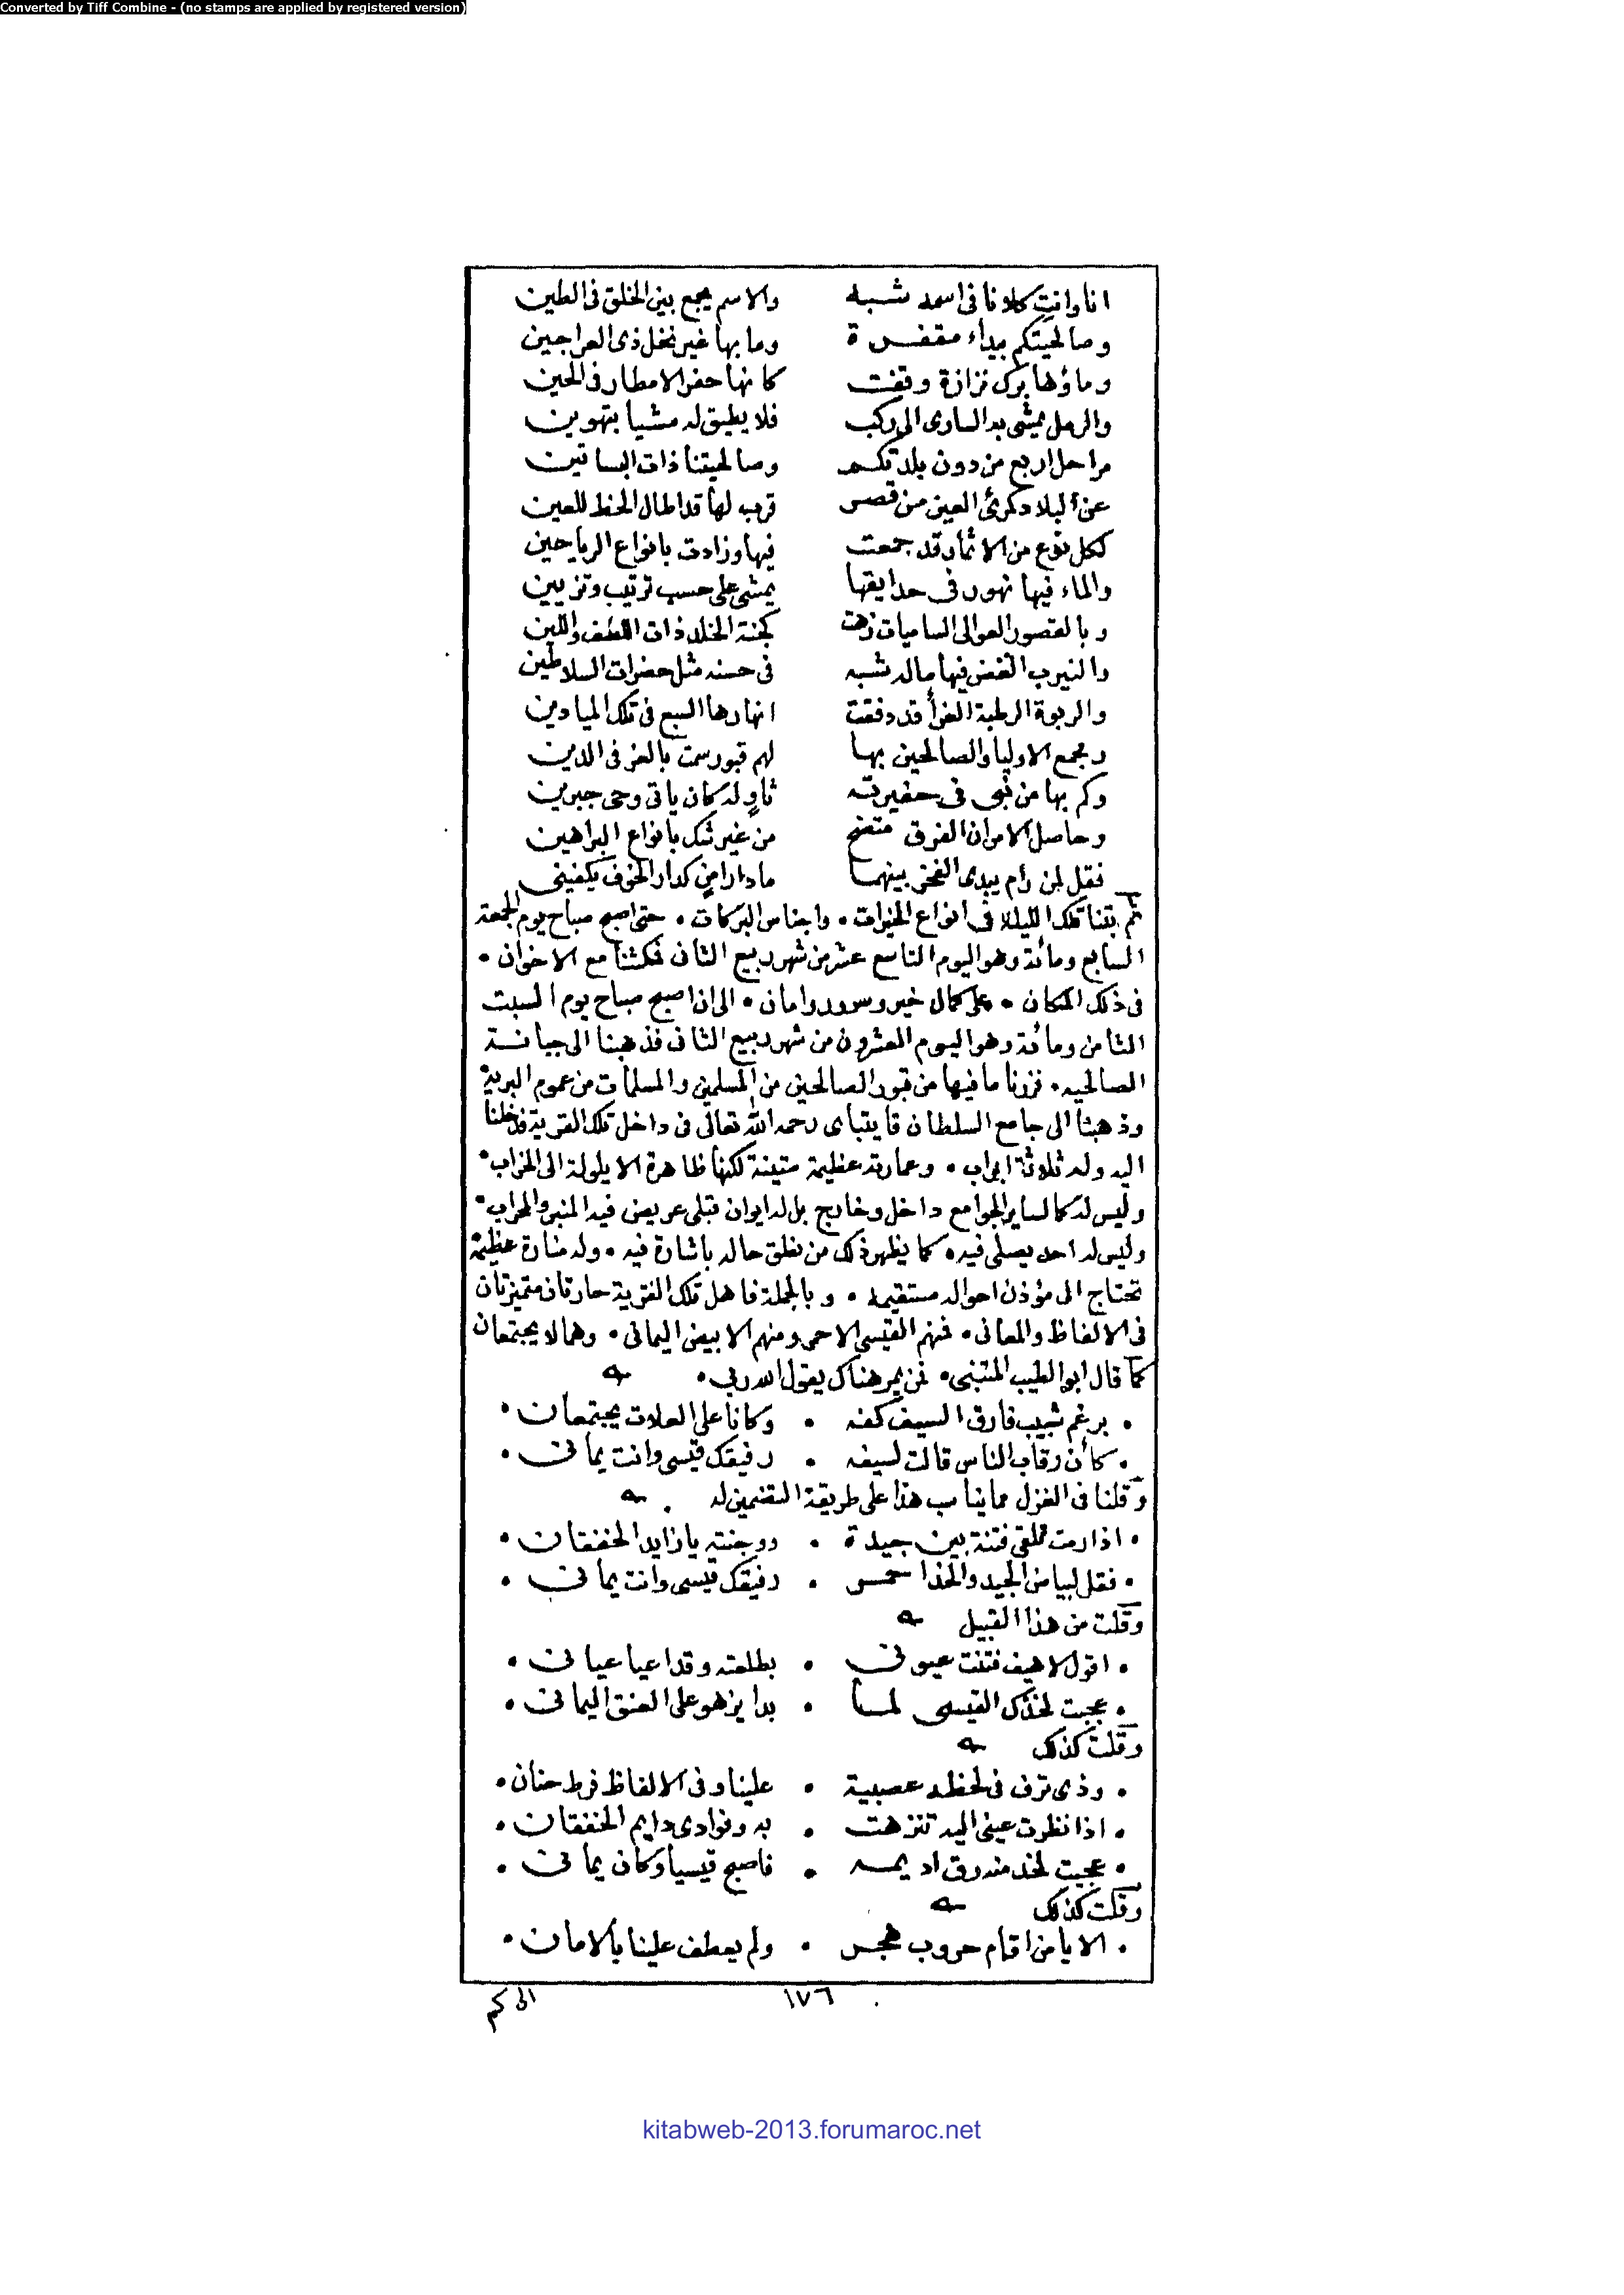 Converted by Tiff Combine - (no stamps are applied by registered version)
انا وانت كلانا فى اسمه شبه والاسم يجمع بين الخلق فى الطين
وصالحيتكم بيداء مقفرة وما بها غير نخل ذى العراجين
وماؤها برك نزازة وقفت كانها حفر الامطار فى الحين
والرمل يمشى به السارى الى ركب فلا يطيق له مشيا بتهوين
مراحل اربع من دون بلدتكم وصالحيتنا ذات البساتين
عن البلاد كمرئ العين من قصر قرب لها قد اطال الحظ للعين
ككل نوع من الاثمار قد جمعت فيها وزادت بانواع الرياحين
والماء فيها نهور فى حدايقها يمشى على حسب ترتيب وتزيين
وبالقصور العوالى الساميات زهت كجنة الخلد ذات اللطف واللين
والنيرب الغض فيها ماله شبه فى حسنه مثل حضرات السلاطين
والربوة الرطبة الغرأ قد دفقت انهارها السبع فى تلك الميادين
ومجمع الاوليا والصالحين بها لهم قبور سمت بالعز فى الدين
وكم بها من نبى فى حفيرته ثاوٍ له كان ياتى وحى جبرين
وحاصل الامر ان الفرق متضح من غير شك بانواع البراهين
فقل لمن رام يبدى الفخر بينهما ما دار امن كدار الخوف يكفينى
ثم بتنا تلك الليلة فى انواع الخيرات • واجناس البركات • حتى اصبح صباح يوم الجمعة
السابع ومائة وهو اليوم التاسع عشر من شهر ربيع الثانى فمكثنا مع الاخوان •
فى ذلك المكان • على كمال خير وسرور وامان • الى ان اصبح صباح يوم السبت
الثامن ومائة وهو اليوم العشرون من شهر ربيع الثانى فذهبنا الى جبانة
الصالحيه • فزرنا ما فيها من قبور الصالحين من المسلمين والمسلمات من عموم البرية
وذهبنا الى جامع السلطان قايتباى رحمه الله تعالى فى داخل تلك القرية فدخلنا
اليه وله ثلاثة ابواب • وعمارته عظيمة متينة لكنها ظاهرة الايلولة الى الخراب •
وليس له كالساير الجوامع داخل وخارج بل له ايوان قبلى عريض فيه المنبر والمحراب •
وليس له احد يصلى فيه • كما يظهر ذلك من نطق حاله باشارة فيه • وله منارة عظيمة
تحتاج الى مؤذن احواله مستقيمه • وبالجملة فاهل تلك القرية حارتان متميزتان
فى الالفاظ والمعانى • فمنهم القيسى الاحمر ومنهم الابيض اليمانى • وهما لا يجتمعان
كما قال ابو الطيب المتنبى • فمن يمر هناك يقول الله ربى •
• برغم شبيب فارق السيف كفه • وكانا على العلات يجتمعان •
• كأن رقاب الناس قالت لسيفه • رفيقك قيسى وانت يمانى •
وقلنا فى الغزل مما يناسب هذا على طريقة التضمين له •
• اذا رمت تلقى فتنة بين جيده • ووجنته يا زايد الخفقان •
• فقل لبياض الجيد والخد احمر • رفيقك قيسى وانت يمانى •
وقلت من هذا القبيل
• اقول لاهيف فتنت عيونى • بطلعته وقد اعيا عيانى •
• عجبت لخدك القيسى لما • بدا يزهو على العنق اليمانى •
وقلت كذلك
• وذى ترف فى لحظه عصبية • علينا وفى الالفاظ فرط حنان •
• اذا نظرت عينى اليه تنزهت • به وفوادى دايم الخفقان •
• عجبت لخد منه رق اديمه • فاصبح قيسيا وكان يمانى •
وقلت كذلك
• الا يا من اقام حروب هجر • ولم يعطف علينا بالامان •
١٧٦ الى كم
kitabweb-2013.forumaroc.net